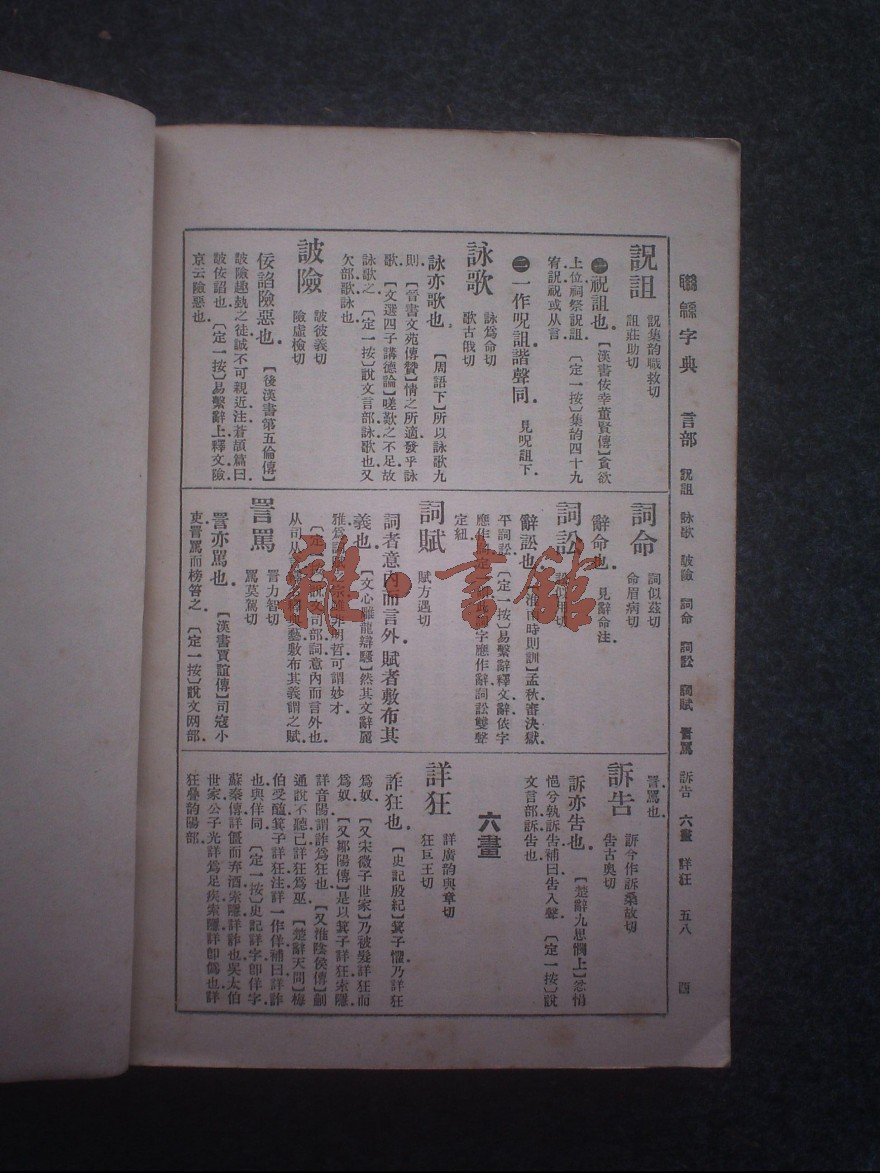 聯緜字典　言部　詋詛　詠歌　詖險　詞命　詞訟　詞賦　詈罵　訴告　六畫　詳狂　五八　酉
詋詛
詋集韵職救切
詛莊助切
㊀祝詛也．【漢書佞幸董賢傳】貪欲
上位祠祭詋詛．〔定一按〕集韵四十九
宥詋祝或从言
㊁一作呪詛諧聲同．見呪詛下．
詠歌
詠爲命切
歌古俄切
詠亦歌也．【周語下】所以詠歌九
則．【晉書文苑傳贊】情之所適發乎詠
歌．【文選四子講德論】嗟歎之不足故
詠歌之．〔定一按〕說文言部詠歌也又
欠部歌詠也．
詖險
詖彼義切
險虛檢切
佞諂險惡也．【後漢書第五倫傳】
詖險趣埶之徒誠不可親近注蒼頡篇曰
詖佞諂也．〔定一按〕易繫辭上釋文險
京云險惡也．
詞命
詞似茲切
命眉病切
辭命也．見辭命注．
詞訟
辭訟也．時則訓】孟秋審決獄
平詞訟．〔定一按〕易繫辭釋文辭依字
字應作辭詞訟雙聲
定紐．
詞賦
賦方遇切
詞者意內而言外．賦者敷布其
義也．【文心雕龍辯騷】然其文辭麗
雅爲詞賦之宗雖非明哲可謂妙才．
〔定一按〕說文司部詞意內而言外也
敷布其義謂之賦
詈罵
詈力智切
罵莫駕切
詈亦罵也．【漢書賈誼傳】司寇小
吏詈罵而榜笞之．〔定一按〕說文网部
詈罵也．
訴告
訴今作訴桑故切
告古奧切
訴亦告也．【楚辭九思憫上】忿悁
悒兮孰訴告補曰告入聲．〔定一按〕說
文言部訴告也．
六畫
詳狂
詳廣韵與章切
狂巨王切
詐狂也．【史記殷紀】箕子懼乃詳狂
爲奴．【又宋微子世家】乃被髮詳狂而
爲奴．【又鄒陽傳】是以箕子詳狂索隱
詳音陽謂詐爲狂也．【又淮陰侯傳】蒯
通說不聽已詳狂爲巫．【楚辭天問】梅
伯受醢箕子詳狂注詳一作佯補曰詳詐
也與佯同．〔定一按〕史記詳字卽佯字
蘇秦傳詳僵而弃酒索隱詳詐也吳太伯
世家公子光詳爲足疾索隱詳卽僞也詳
狂疊韵陽部．
雜·書館